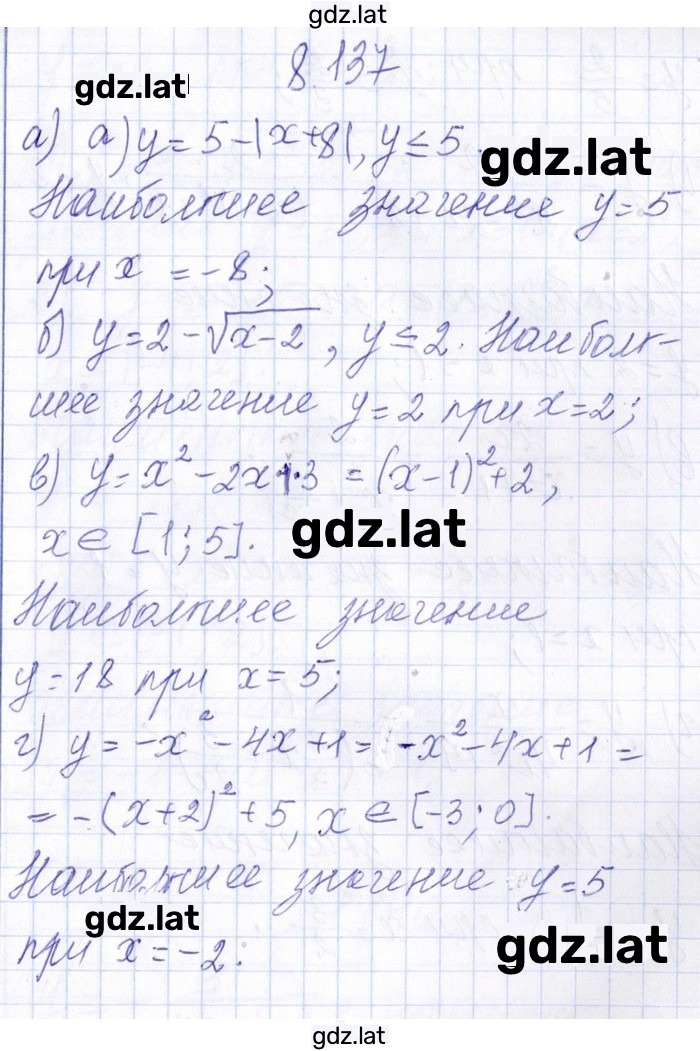 gdz.lat
8.137
gdz.lat
а) а) y = 5 - |x+8|, y ≤ 5.
gdz.lat
Наибольшее значение y = 5
при x = -8;
б) y = 2 - √x-2, y ≤ 2. Наиболь-
шее значение y = 2 при x = 2;
в) y = x² - 2x + 3 = (x-1)² + 2,
x ∈ [1; 5].
gdz.lat
Наибольшее значение
y = 18 при x = 5;
г) y = -x² - 4x + 1 = -x² - 4x + 1 =
= -(x+2)² + 5, x ∈ [-3; 0].
Наибольшее значение y = 5
gdz.lat
при x = -2.
gdz.lat
gdz.lat